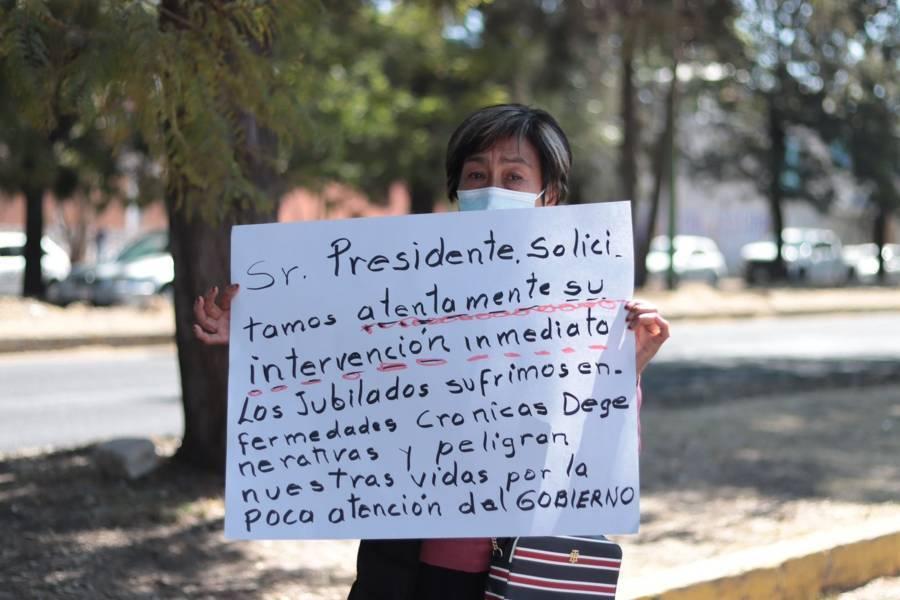 Sr. Presidente. Solici-
tamos atentamente su
intervención inmediato
Los Jubilados sufrimos en-
fermedades Cronicas Dege
nerativas y peligran
nuestras vidas por la
poca atención del GOBIERNO